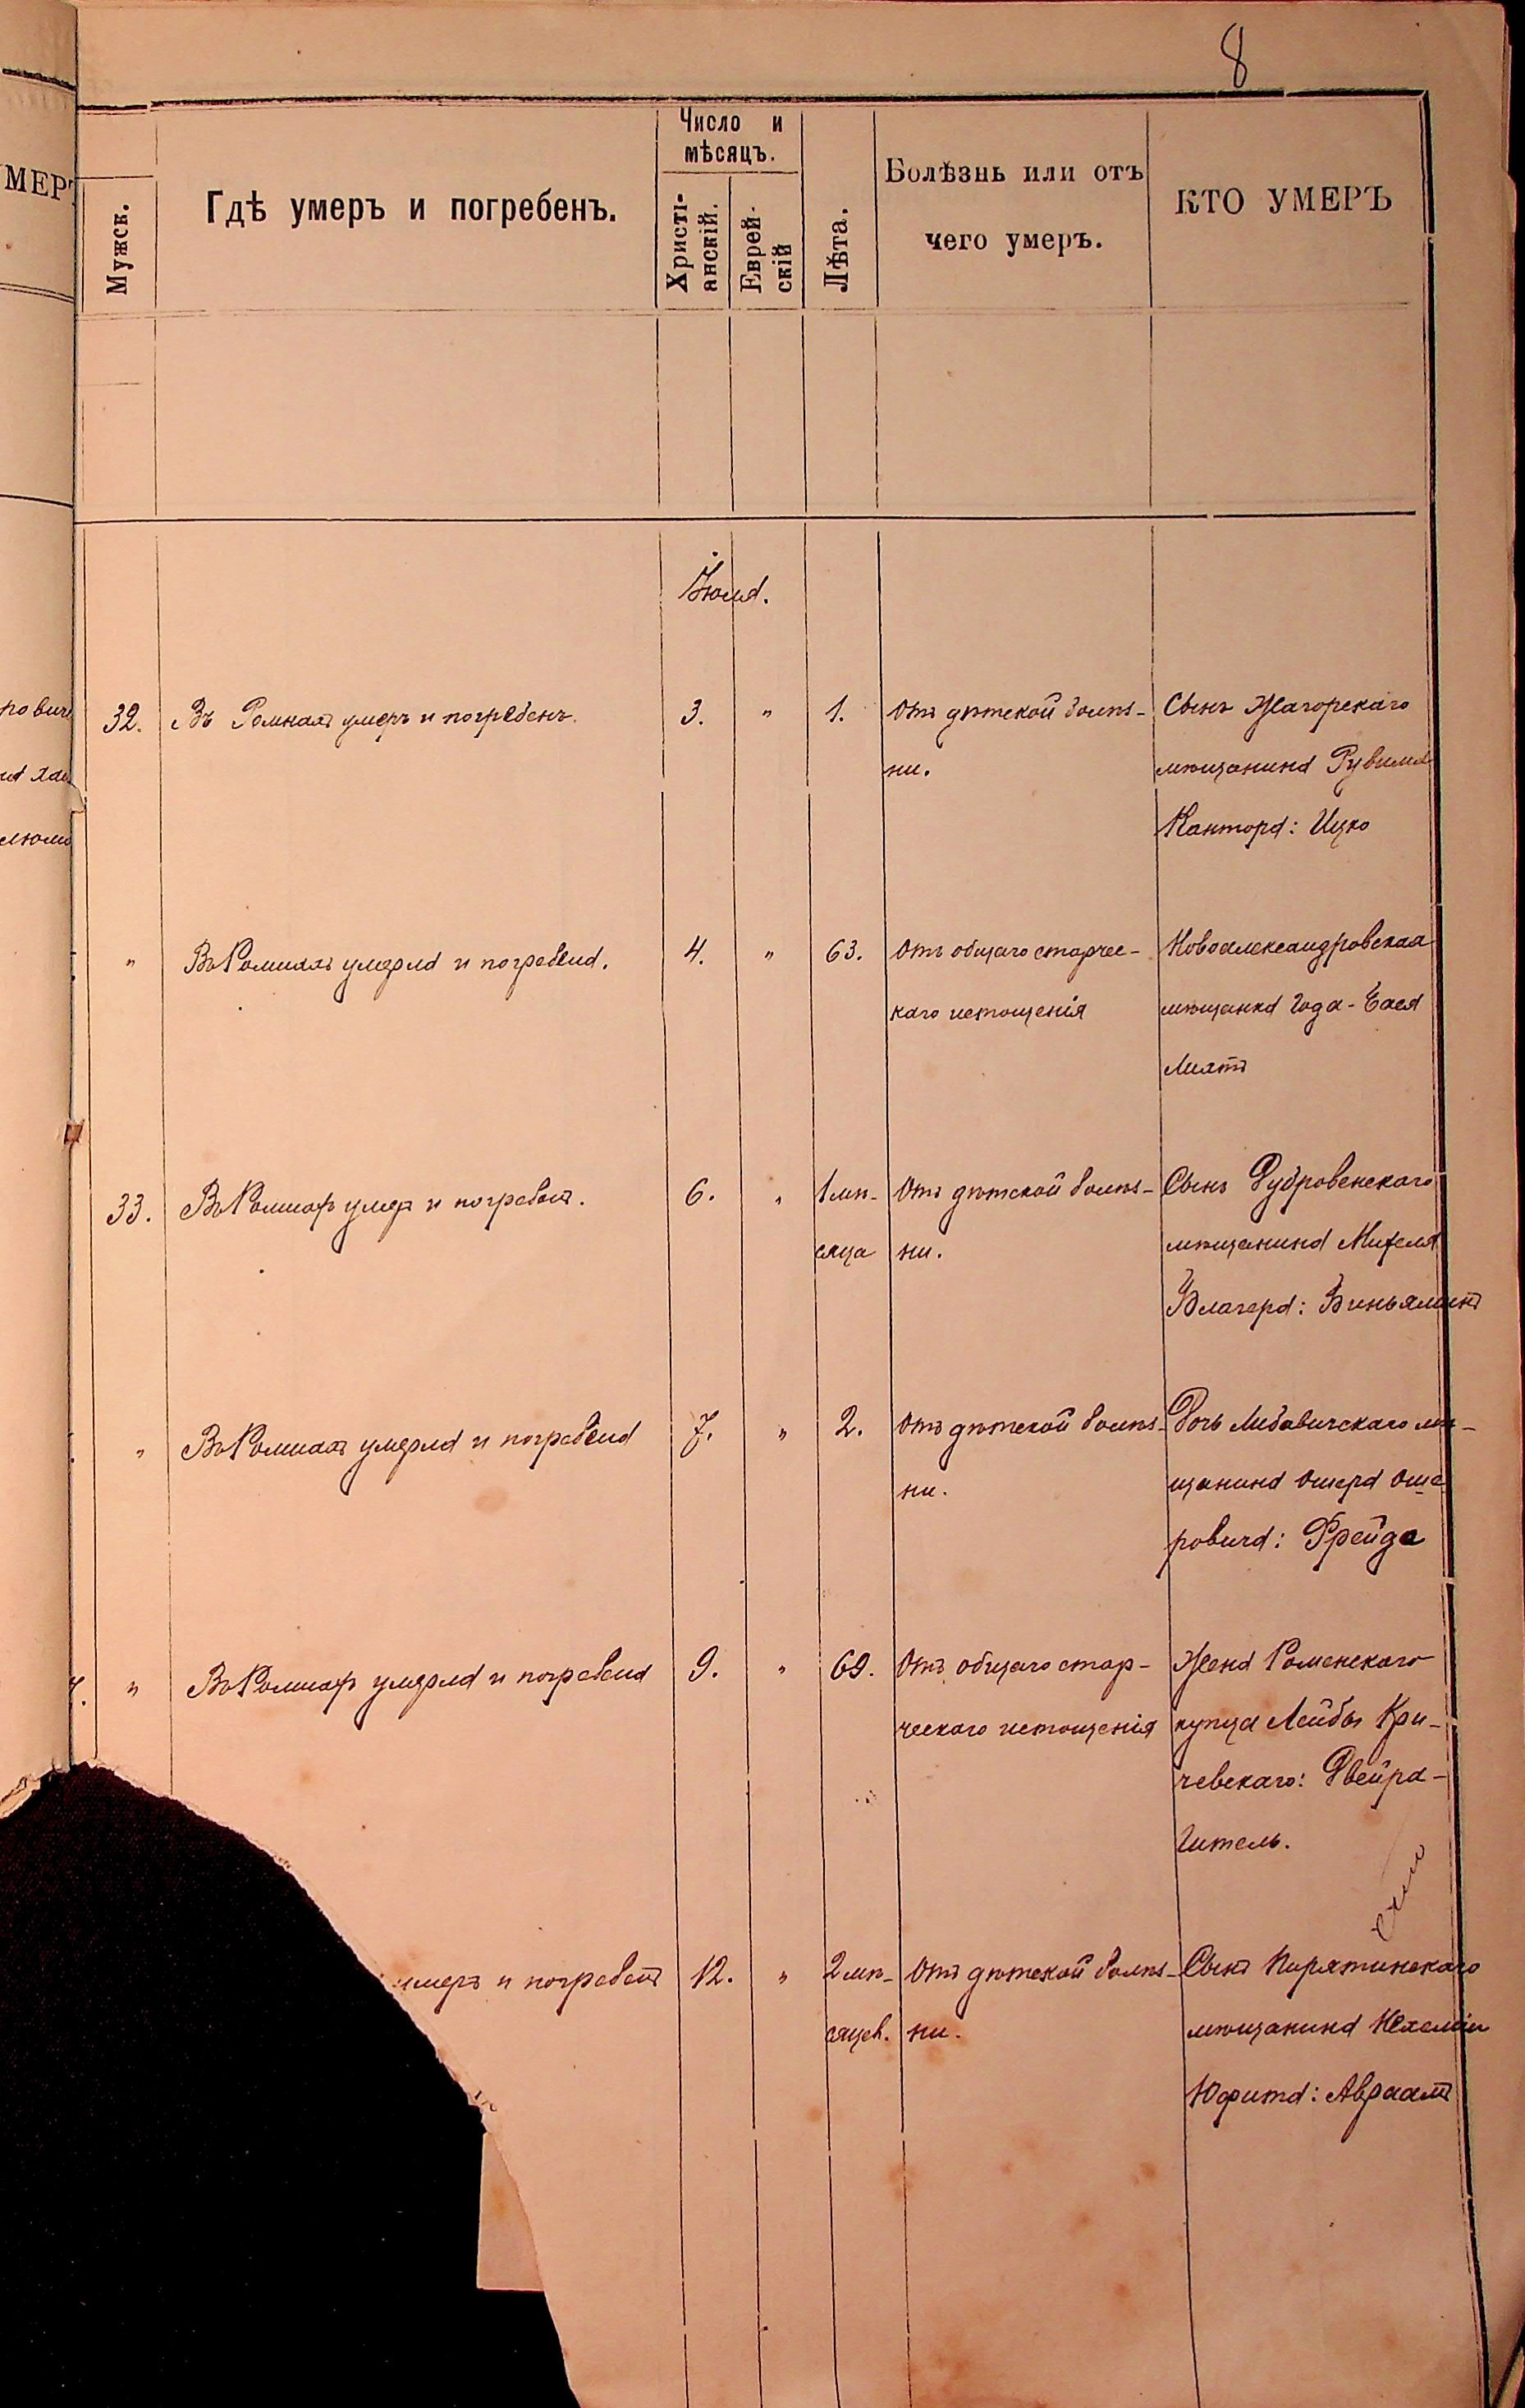 8
МЕР
Мужск.
Гдѣ умеръ и погребенъ.
Число и
мѣсяцъ.
Христі-
анскій.
Еврей-
скій
Лѣта.
Болѣзнь или отъ
чего умеръ.
КТО УМЕРЪ
Іюля.
32. Въ Ромнахъ умеръ и погребенъ. 3. " 1. Отъ дѣтской болѣз- Сынъ Жагорскаго
ни. мѣщанина Рувима
Кантора: Ицко
" Въ Ромнахъ умерла и погребена. 4. " 63. Отъ общаго старчес- Новоалександровская
каго истощенія мѣщанка Года-Бася
Лихтъ
33. Въ Ромнахъ умеръ и погребенъ. 6. " 1 мѣ- Отъ дѣтской болѣз- Сынъ Дубровенскаго
сяца ни. мѣщанина Михеля
Влагера: Виньяминъ
" Въ Ромнахъ умерла и погребена 7. " 2. Отъ дѣтской болѣз- Дочь Любавичскаго мѣ-
ни. щанина Ошера Оше
ровича: Фрейда
" Въ Ромнахъ умерла и погребена 9. " 69. Отъ общаго стар- Жена Роменскаго
ческаго истощенія купца Лейбы Кри-
чевскаго: Двейра-
Гитель.
умеръ и погребенъ 12. " 2 мѣ- Отъ дѣтской болѣз- Сынъ Пирятинскаго
сяцев. ни. мѣщанина Нехеміи
Юфита: Авраамъ